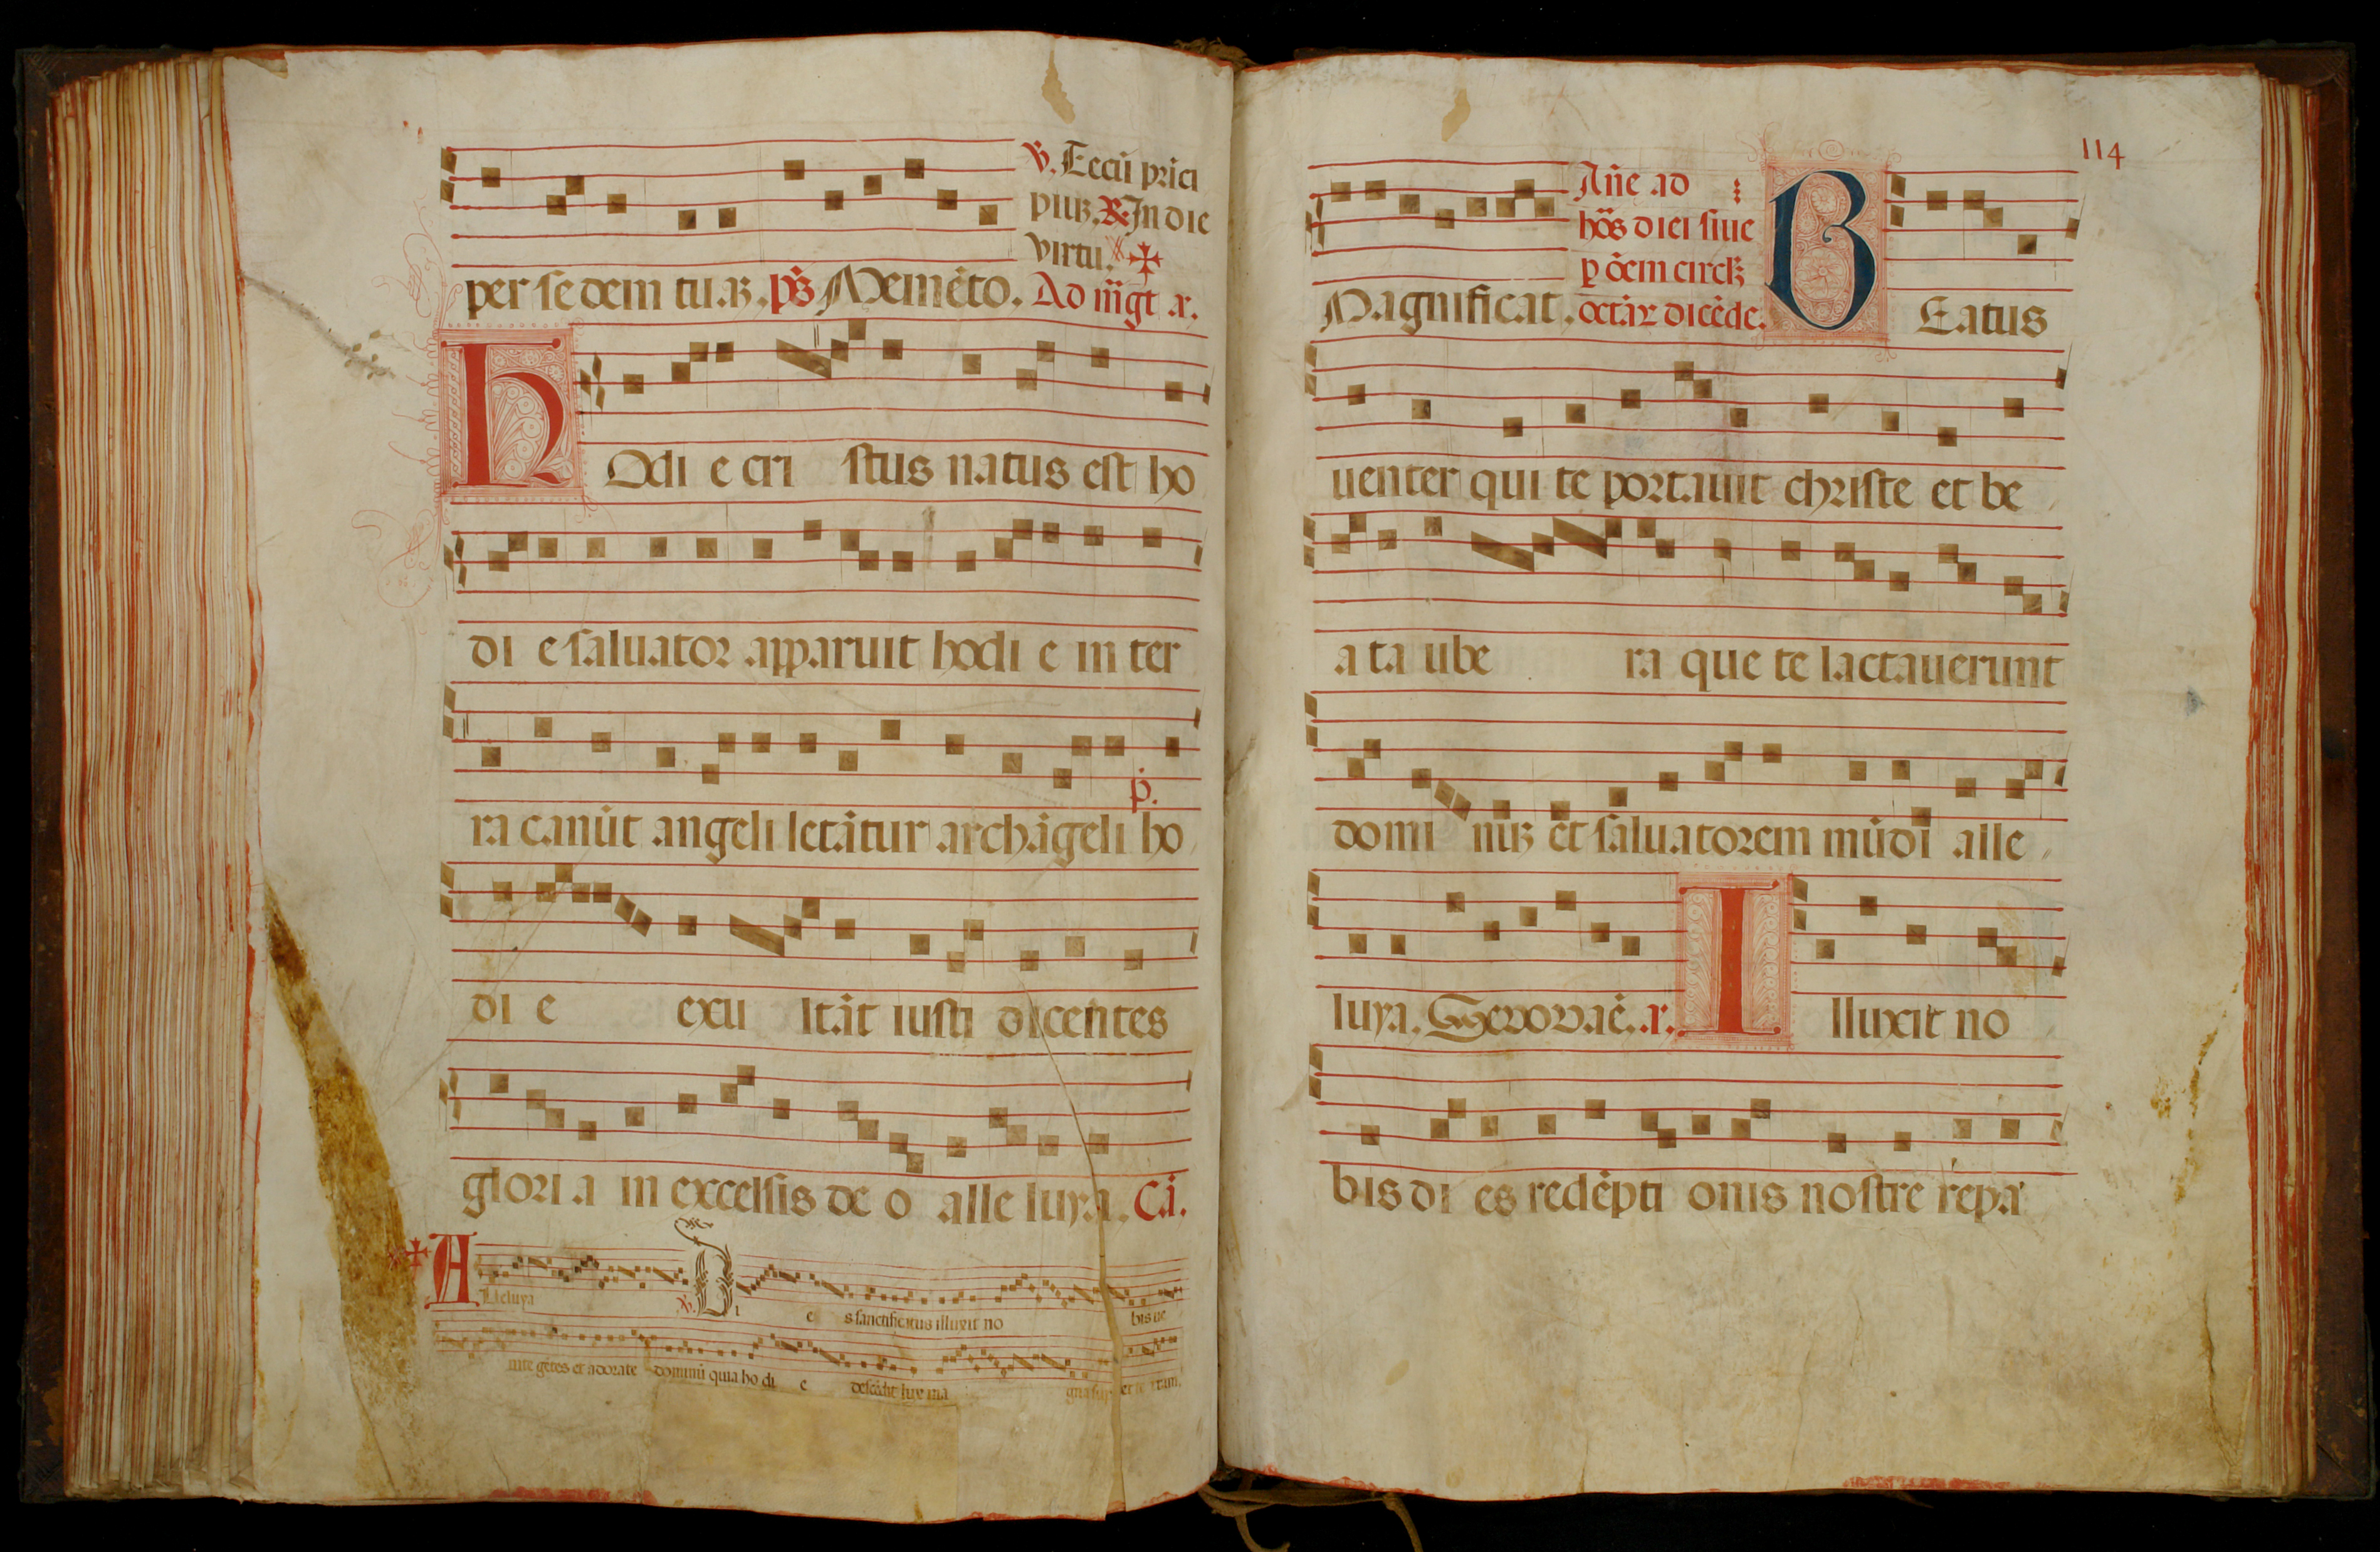 ℣. Eccū prīci
piuꝫ. ℟ In die
virtu.
per sedem tuaꝫ. p̄s Memēto. Ad m̄gt a.
HOdi e cri stus natus est ho
di e saluator apparuit hodi e in ter
ra canūt angeli letātur archāgeli ho
di e exu ltāt iusti dicentes
glori a in excelsis de o alle luya. Cā.
ALleluya ℣. DI e s sanctificatus illuxit no bis ue
nite gētes et adorate dominū quia ho di e descēdit lux ma gna sup terram.
114
Añe ad
hōs diei siue
p ōem circūꝫ
Magnificat. octāꝝ dicēde. BEatus
uenter qui te portauit christe et be
a ta ube ra que te lactauerunt
domi nuꝫ et saluatorem mūdi alle
luya. Seuouaē. a. Illuxit no
bis di es redēpti onis nostre repa